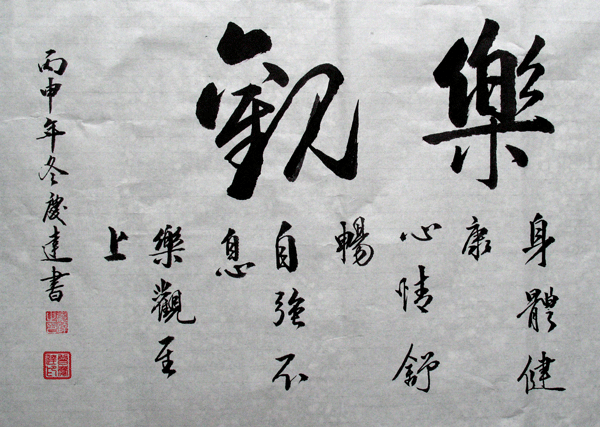 樂觀
身體健
康
心情舒
暢
自強不
息
樂觀至
上
丙申年冬慶達書